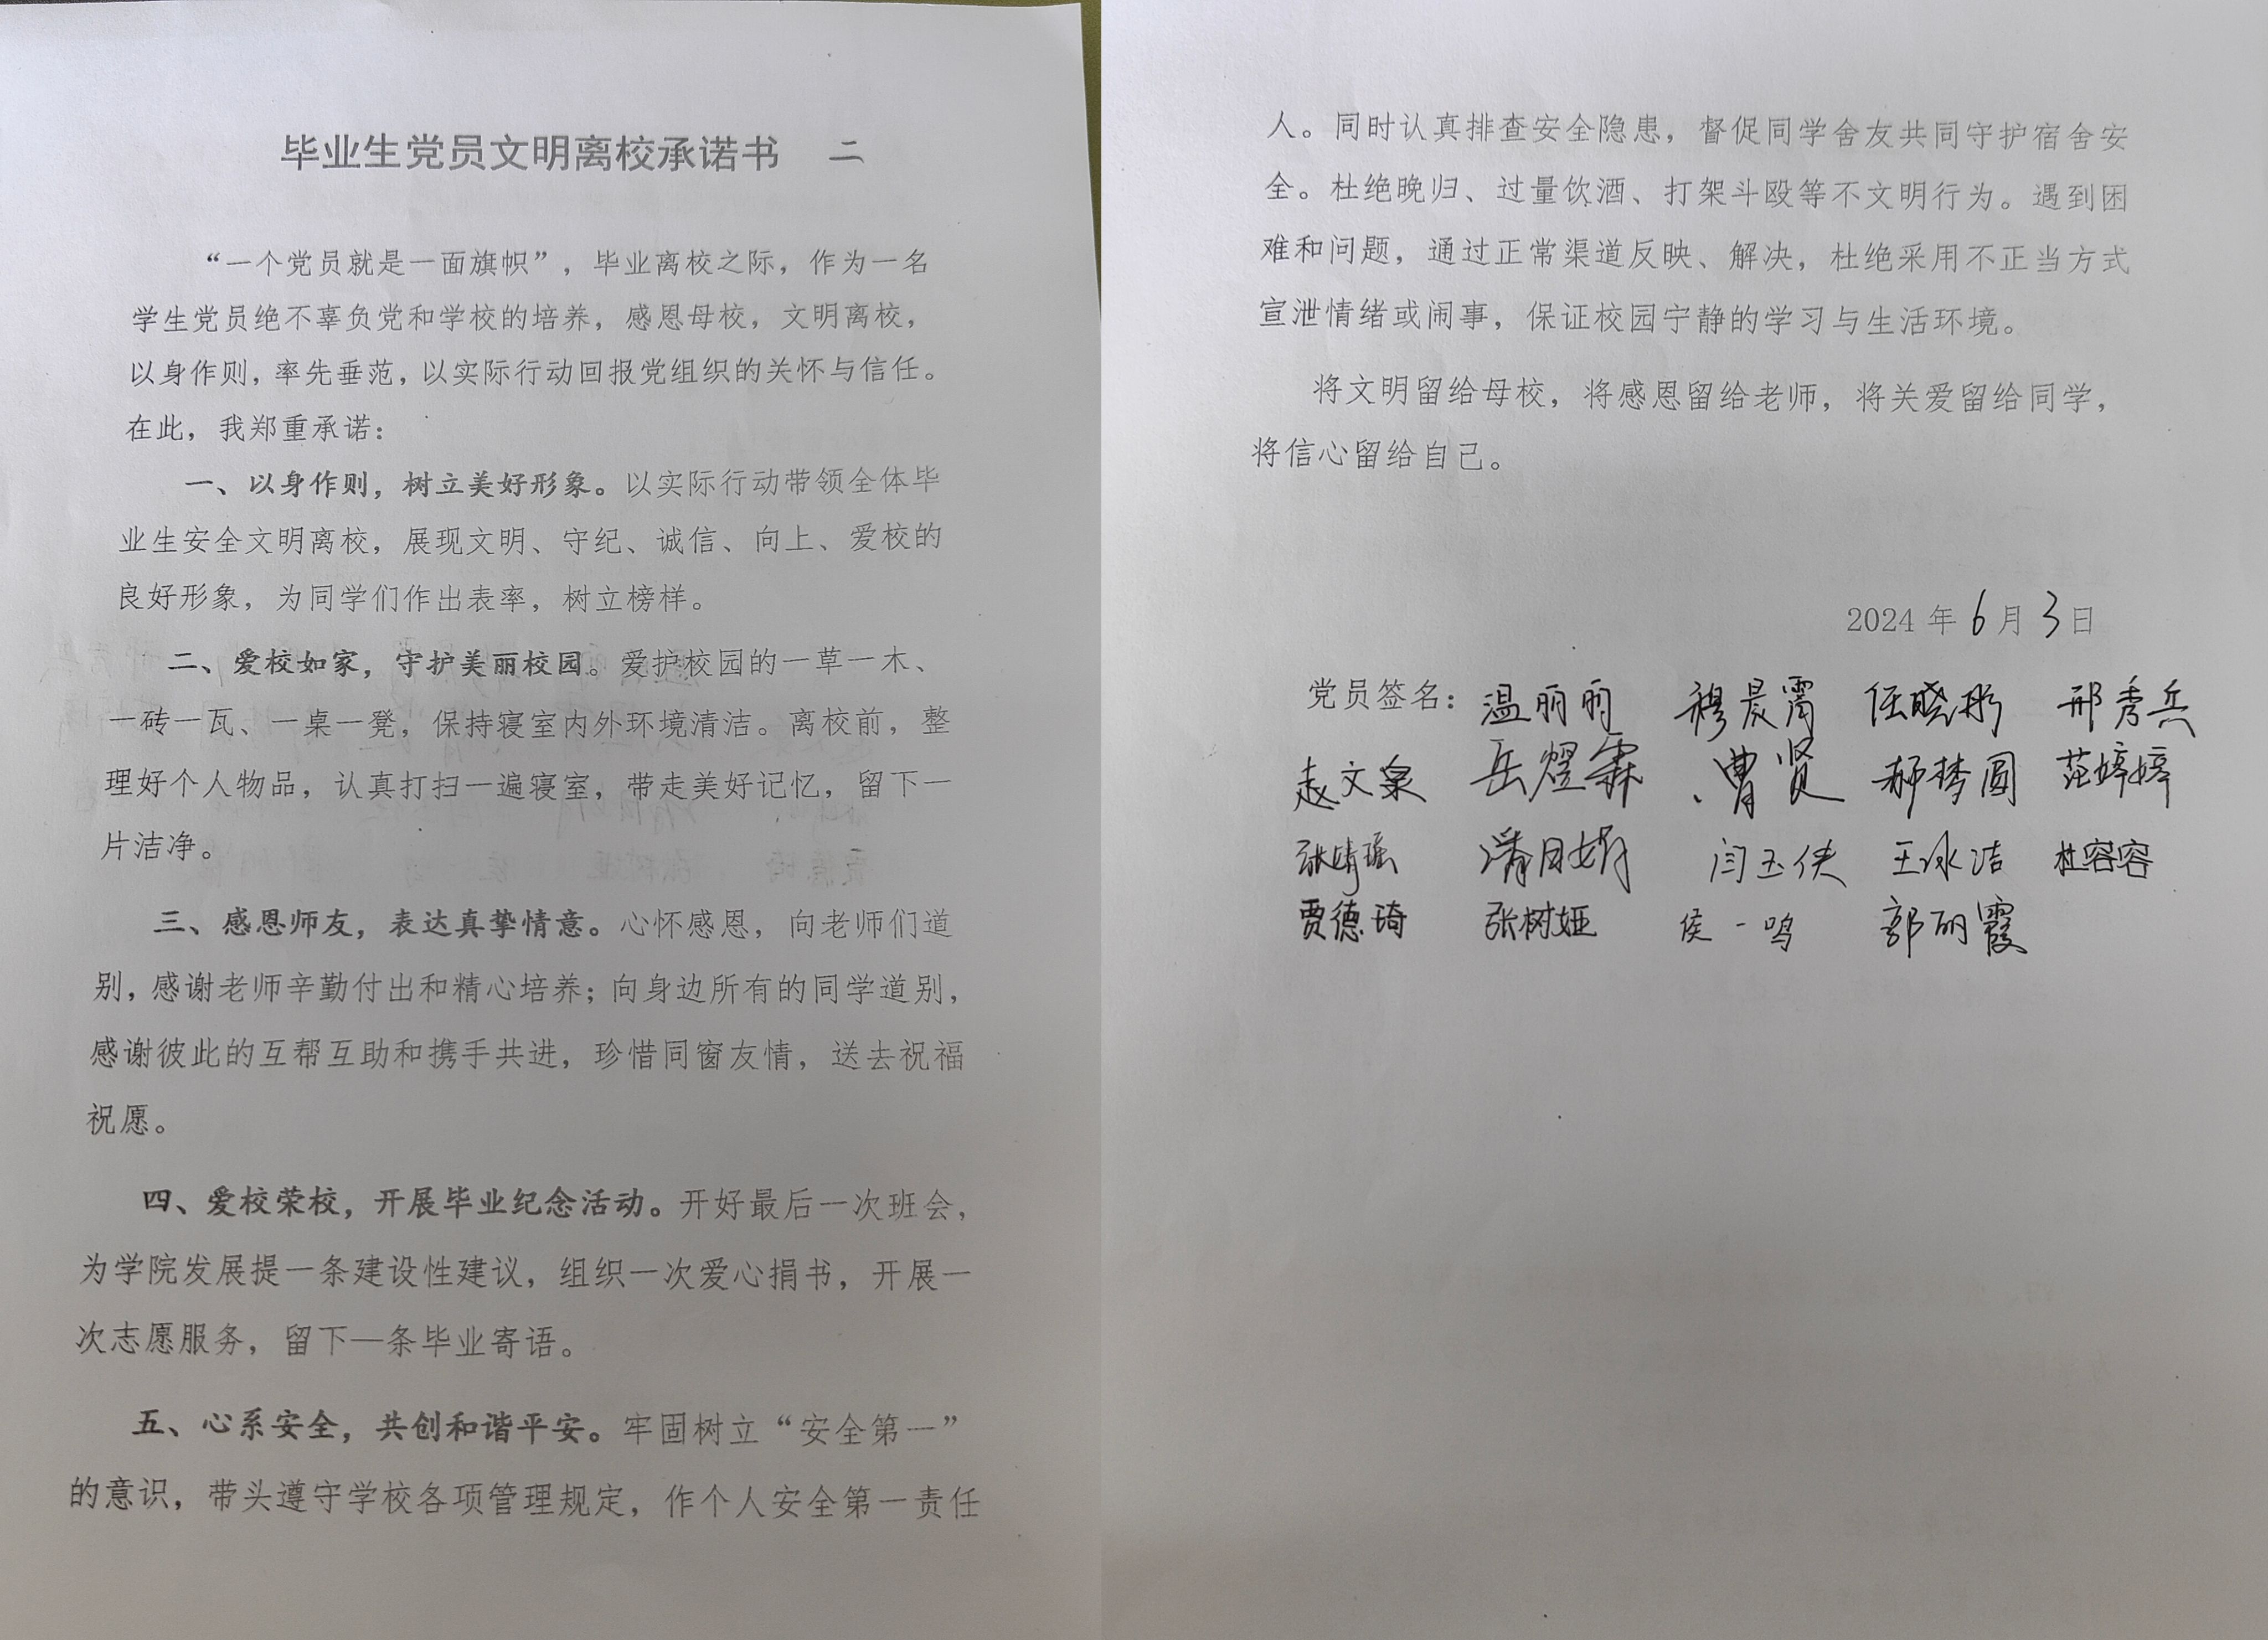 毕业生党员文明离校承诺书 二
“一个党员就是一面旗帜”，毕业离校之际，作为一名
学生党员绝不辜负党和学校的培养，感恩母校，文明离校，
以身作则，率先垂范，以实际行动回报党组织的关怀与信任。
在此，我郑重承诺：
一、以身作则，树立美好形象。以实际行动带领全体毕
业生安全文明离校，展现文明、守纪、诚信、向上、爱校的
良好形象，为同学们作出表率，树立榜样。
二、爱校如家，守护美丽校园。爱护校园的一草一木、
一砖一瓦、一桌一凳，保持寝室内外环境清洁。离校前，整
理好个人物品，认真打扫一遍寝室，带走美好记忆，留下一
片洁净。
三、感恩师友，表达真挚情意。心怀感恩，向老师们道
别，感谢老师辛勤付出和精心培养；向身边所有的同学道别，
感谢彼此的互帮互助和携手共进，珍惜同窗友情，送去祝福
祝愿。
四、爱校荣校，开展毕业纪念活动。开好最后一次班会，
为学院发展提一条建设性建议，组织一次爱心捐书，开展一
次志愿服务，留下—条毕业寄语。
五、心系安全，共创和谐平安。牢固树立“安全第一”
的意识，带头遵守学校各项管理规定，作个人安全第一责任
人。同时认真排查安全隐患，督促同学舍友共同守护宿舍安
全。杜绝晚归、过量饮酒、打架斗殴等不文明行为。遇到困
难和问题，通过正常渠道反映、解决，杜绝采用不正当方式
宣泄情绪或闹事，保证校园宁静的学习与生活环境。
将文明留给母校，将感恩留给老师，将关爱留给同学，
将信心留给自己。
2024 年 6 月 3 日
党员签名： 温丽丽 穆晨霄 任晓彤 邢秀兵
赵文泉 岳煜霖 曹贤 郝梦圆 范婷婷
张靖瑶 闫玉侠 王冰洁 杜容容
贾德琦 张树娅 侯一鸣 郭丽霞